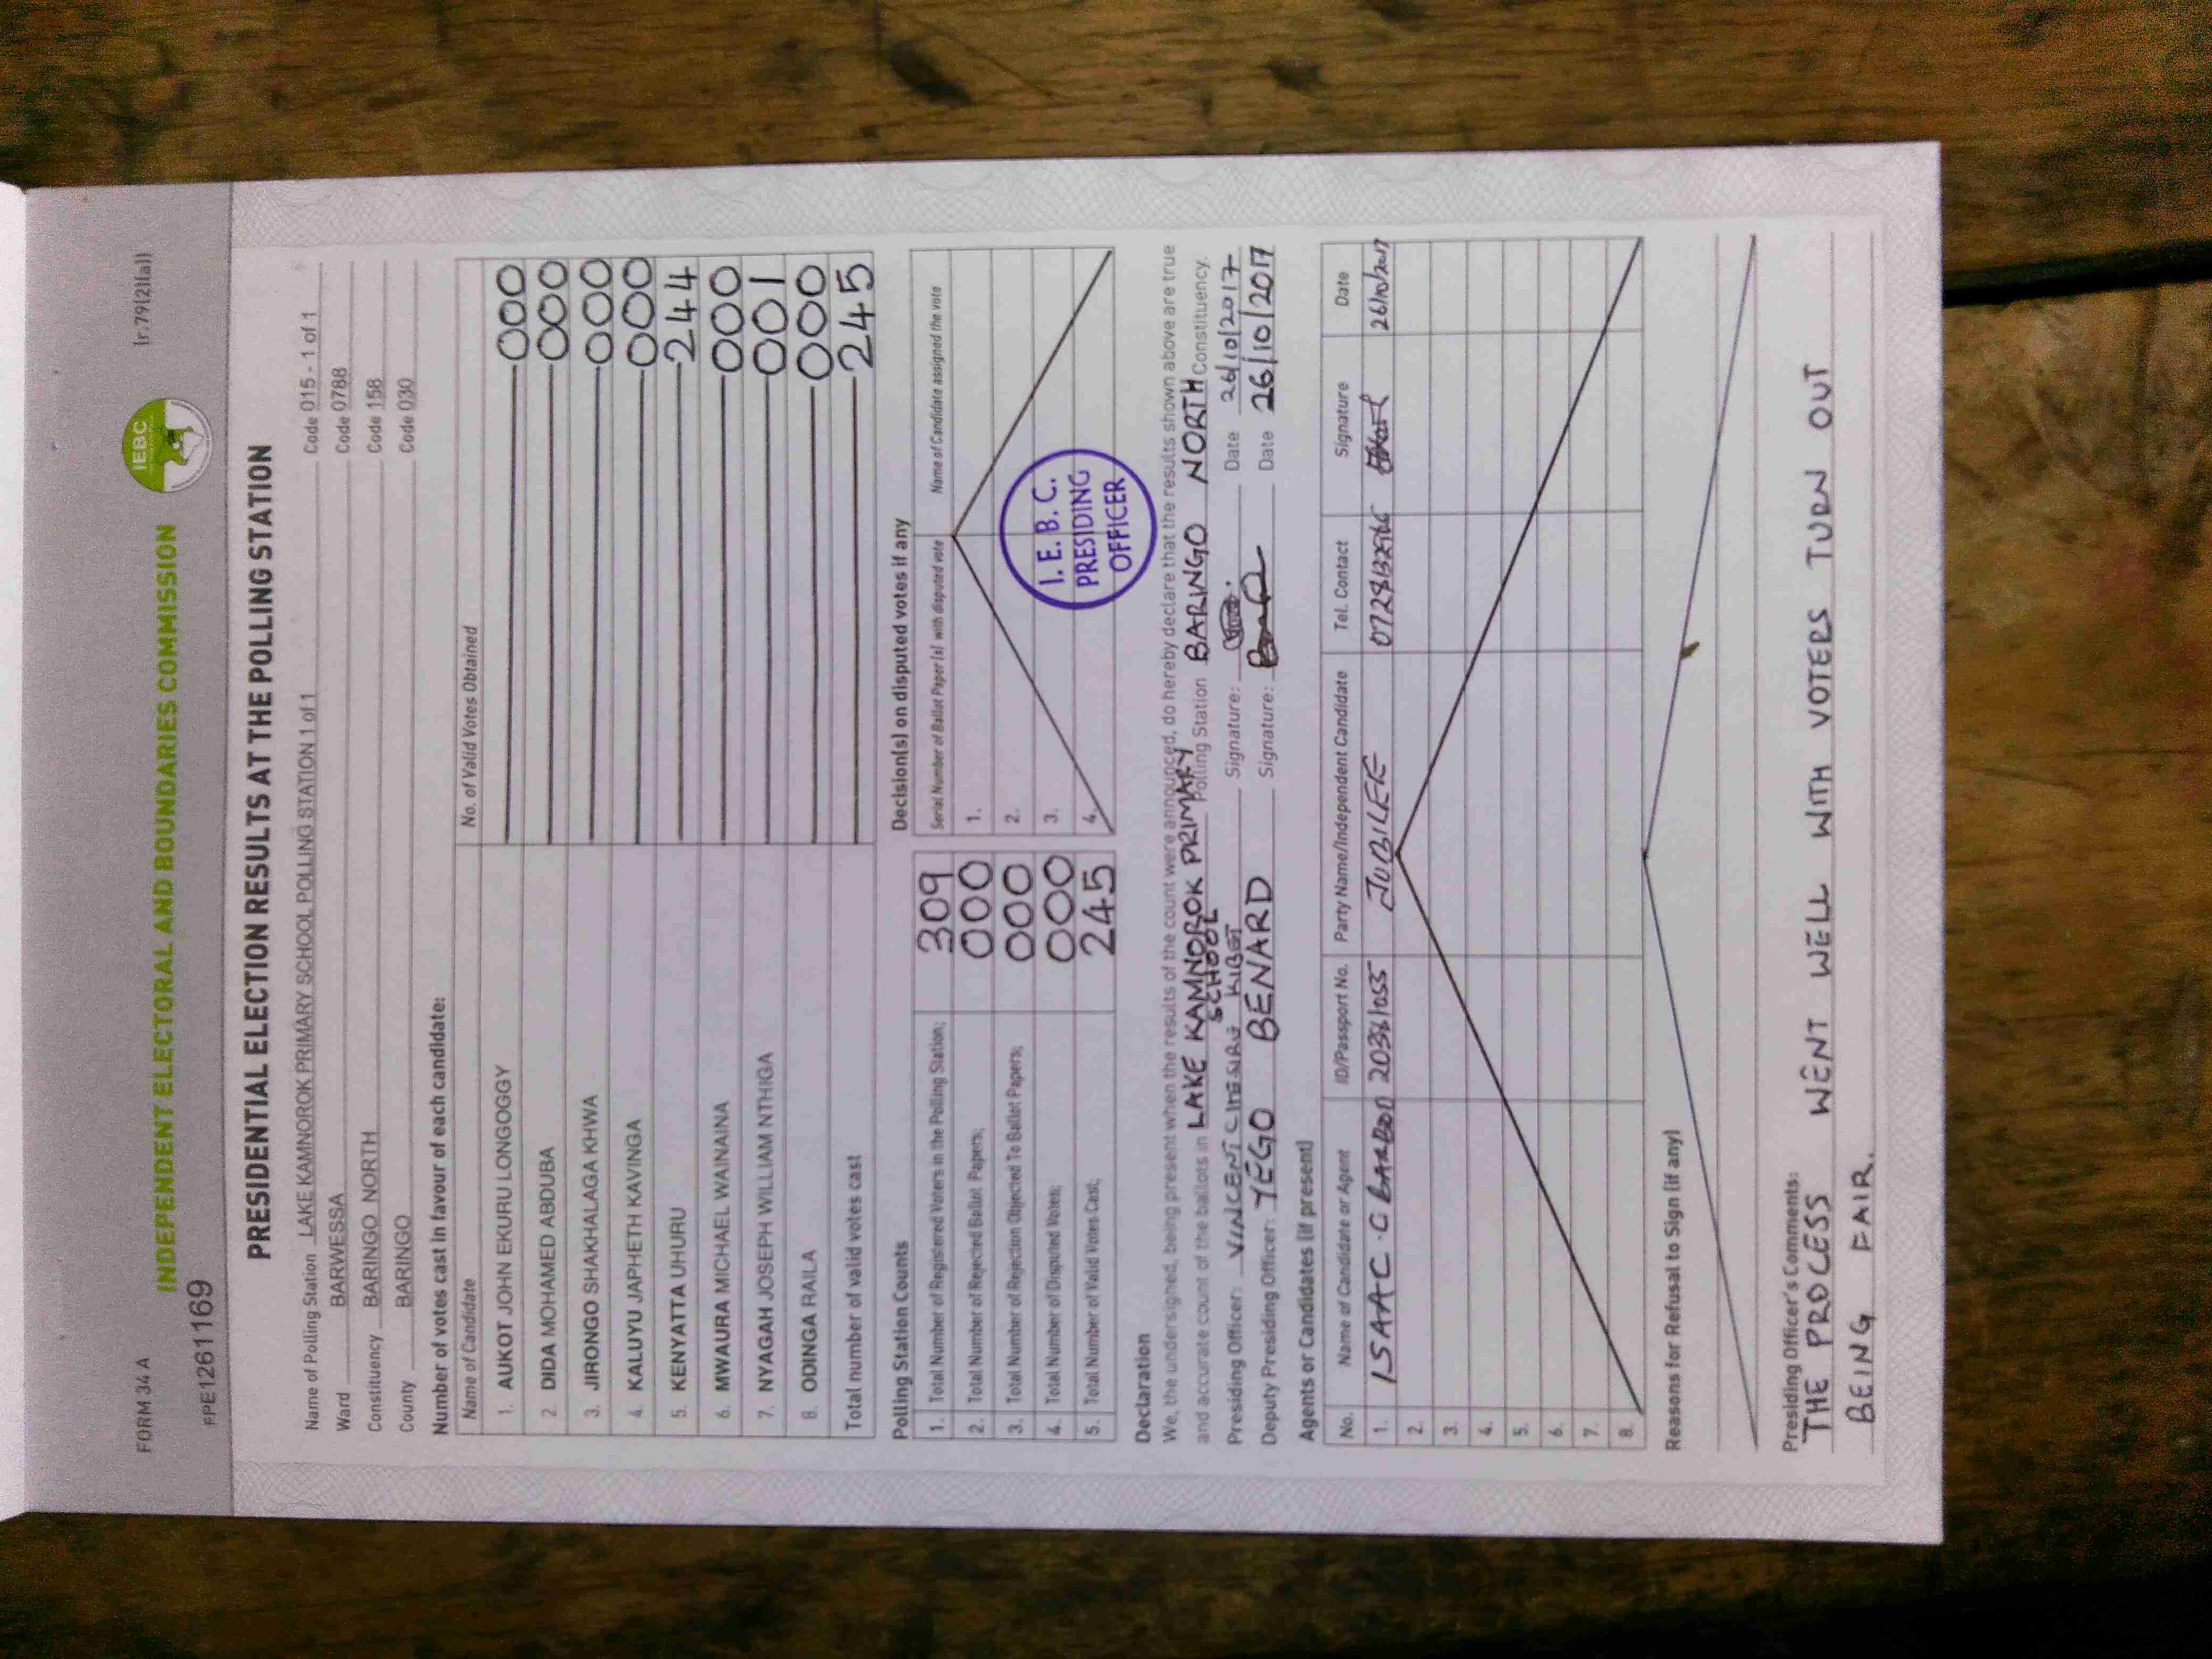 FORM 34 A
(r.79(2)(a))
INDEPENDENT ELECTORAL AND BOUNDARIES COMMISSION
IEBC
PPE1261169
PRESIDENTIAL ELECTION RESULTS AT THE POLLING STATION
Name of Polling Station LAKE KAMNOROK PRIMARY SCHOOL POLLING STATION 1 of 1 Code 015 - 1 of 1
Ward BARWESSA Code 0788
Constituency BARINGO NORTH Code 158
County BARINGO Code 030
Number of votes cast in favour of each candidate:
Name of Candidate No. of Valid Votes Obtained
1. AUKOT JOHN EKURU LONGOGGY 000
2. DIDA MOHAMED ABDUBA 000
3. JIRONGO SHAKHALAGA KHWA 000
4. KALUYU JAPHETH KAVINGA 000
5. KENYATTA UHURU 244
6. MWAURA MICHAEL WAINAINA 000
7. NYAGAH JOSEPH WILLIAM NTHIGA 001
8. ODINGA RAILA 000
Total number of valid votes cast 245
Polling Station Counts
1. Total Number of Registered Voters in the Polling Station; 309
2. Total Number of Rejected Ballot Papers; 000
3. Total Number of Rejection Objected To Ballot Papers; 000
4. Total Number of Disputed Votes; 000
5. Total Number of Valid Votes Cast; 245
Decision(s) on disputed votes if any
Serial Number of Ballot Paper (s) with disputed vote Name of Candidate assigned the vote
1.
2.
3.
4.
I. E. B. C.
PRESIDING
OFFICER
Declaration
We, the undersigned, being present when the results of the count were announced, do hereby declare that the results shown above are true
and accurate count of the ballots in LAKE KAMNOROK PRIMARY SCHOOL Polling Station BARINGO NORTH Constituency.
Presiding Officer: VINCENT KIBET Signature: Date 26/10/2017
Deputy Presiding Officer: YEGO BENARD Signature: Date 26/10/2017
Agents or Candidates (if present)
No. Name of Candidate or Agent ID/Passport No. Party Name/Independent Candidate Tel. Contact Signature Date
1. ISAAC .C JUBILEE 26/10/2017
2.
3.
4.
5.
6.
7.
8.
Reasons for Refusal to Sign (if any)
Presiding Officer's Comments:
THE PROCESS WENT WELL WITH VOTERS TURN OUT
BEING FAIR.